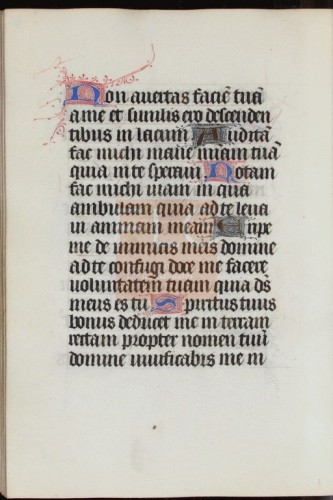 Non auertas faciē tuā
a me et similis ero descenden
tibus in lacum Auditā
fac michi mane miam tuā
quia in te speraui Notam
fac michi uiam in qua
ambulam quia ad te leua
ui animam meam Eripe
me de inimicis meis domine
ad te confugi doce me facere
uoluntatem tuam quia ds
meus es tu Spiritus tuus
bonus deducet me in terram
rectam propter nomen tuū
domine uiuificabis me in